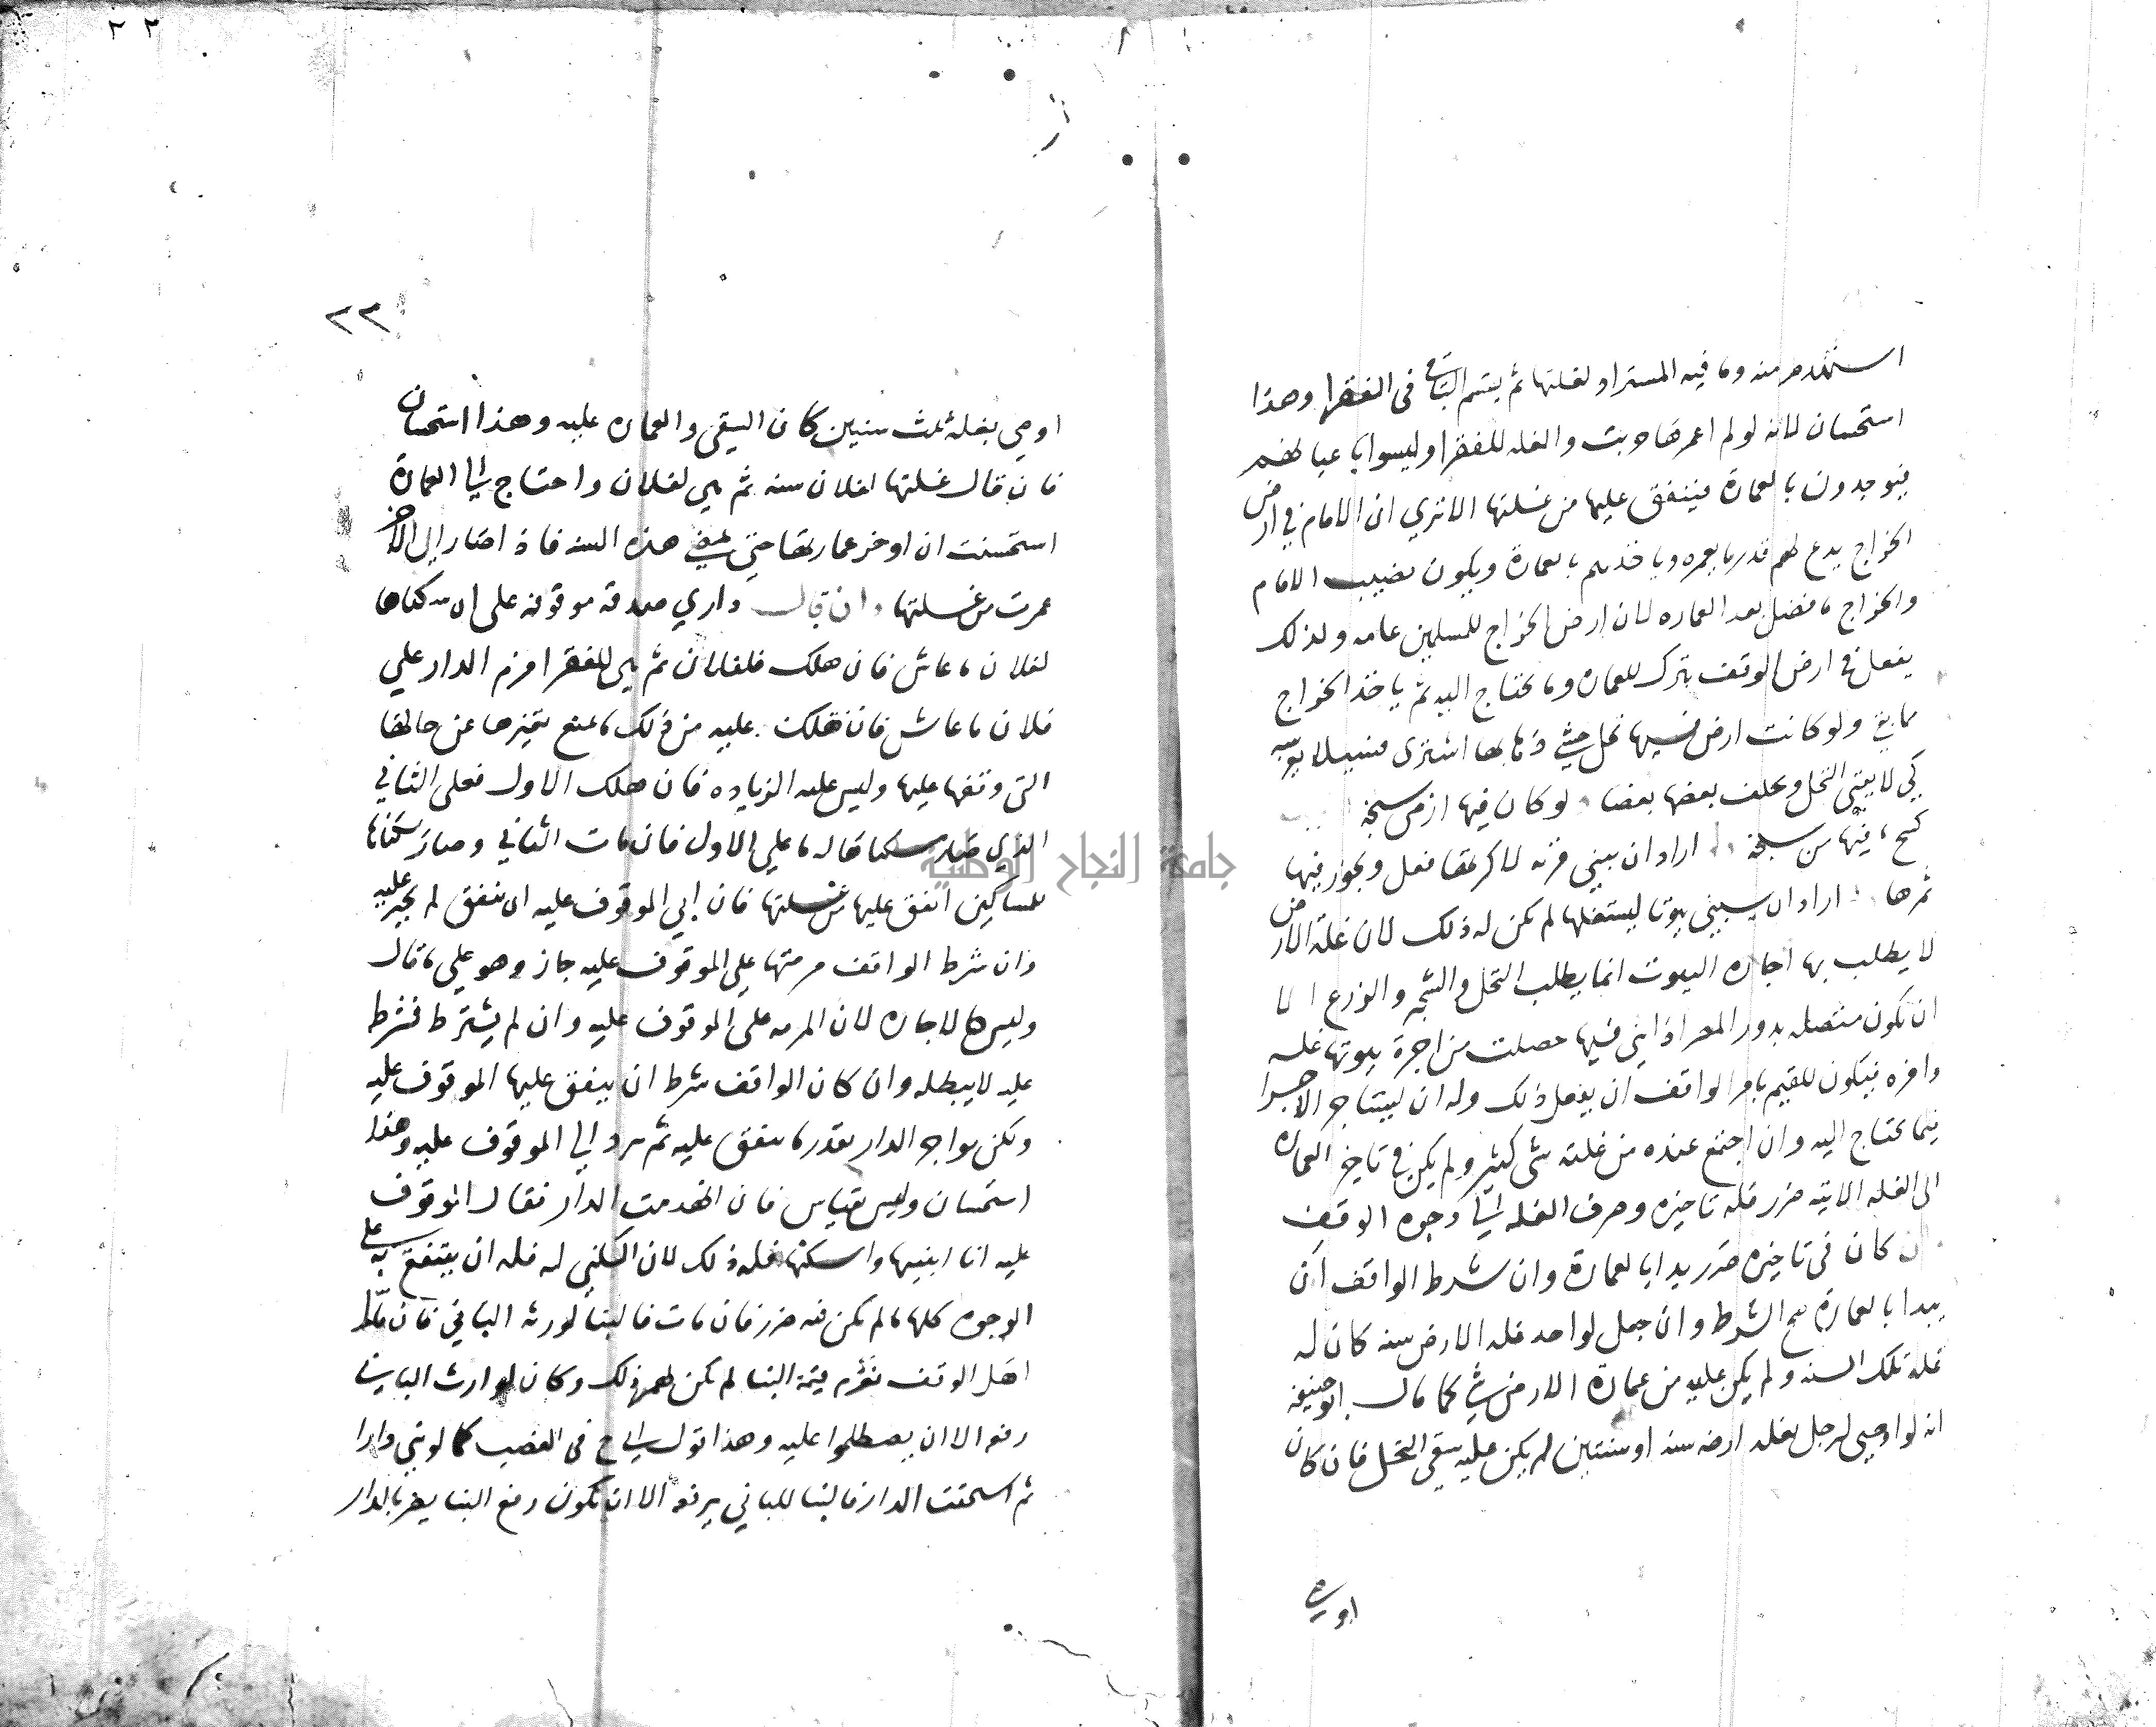 استهدم منه وما فيه المستزاد لغلتها ثم يقسم الباقي في الفقرا وهذا
استحسان لانه لو لم اعمرها خربت والغله للفقرا وليسوا باعيانهم
فيوخذون بالعمارة فينفق عليها من غلتها الا تري ان الامام في ارض
الخراج يدع لهم قدر ما يعمره وياخذهم بالعمارة ويكون نصيب الامام
والخراج ما فضل بعد العماره لان ارض الخراج للمسلمين عامه ولذلك
يفعل في ارض الوقف يترك للعماره وما يحتاج اليه ثم ياخذ الخراج
مما بقي ولو كانت ارض فيها نخل خشي ذهابها اشتري فسيلا يغرسه
كي لا يفنى النخل ويخلف بعضها بعضا لو كان فيها ارض سبخة
كسح ما فيها من سبخة اراد ان يبني قريه لاكرتها فعل ويحوز فيها
ثمرها اراد ان يبني بيوتا ليستغلها لم يكن له ذلك لان غلة الارض
لا يطلب بها اجاره البيوت انما يطلب النخل والشجر والزرع الا
ان تكون متصله بدور المصر اذا بني فيها حصلت من اجرة بيوتها غله
وافره فيكون للقيم بامر الواقف ان يفعل ذلك وله ان يستاجر الاجرا
فيما يحتاج اليه وان اجتمع عنده من غلته شي كثير ولم يكن في تاخير العماره
الى الغله الاتيه ضرر فله تاخيره وصرف الغله الي وجوه الوقف
ان كان في تاخيره ضرر بدا بالعمارة وان شرط الواقف ان
يبدا بالعمارة صح الشرط وان جعل لواحد غله الارض سنه كان له
غلة تلك السنه ولم يكن عليه من عمارة الارض شي كما قال ابو حنيفه
انه لو اوصى لرجل بغله ارضه سنه او سنتين لم يكن عليه سقي النخل فان كان
اوصي
٢٣
٢٣
اوصي بغلة ثلث سنين كان السقي والعماره عليه وهذا استحسان
فان قال غلتها لفلان سنه ثم هي لفلان واحتاج الي العمارة
استحسنت ان اوخر عمارتها حتى تمضي هذه السنه فاذا صار الي الاخر
عمرت من غلتها وان قال داري صدقه موقوفه على ان سكناها
لفلان ما عاش فان هلك فلفلان ثم هي للفقرا فرم الدار علي
فلان ما عاش فان هلكت عليه من ذلك ما يمنع تغيرها عن حالها
التي وقفها عليها وليس عليه الزياده فان هلك الاول فعلى الثاني
الذي صار سكناها له ما علي الاول فان مات الثاني وصار سكناها
للمساكين انفق عليها من غلتها فان ابي الموقوف عليه ان ينفق لم يجبر عليه
وان شرط الواقف مرمتها علي الموقوف عليه جاز وهو علي ما قال
وليس كالاجاره لان المرمه على الموقوف عليه وان لم يشترط فشرط
عليه لا يبطله وان كان الواقف شرط ان ينفق عليها الموقوف عليه
ولكن يواجر الدار بقدر ما ينفق عليه ثم يرد الي الموقوف عليه وهذا
استحسان وليس بقياس فان انهدمت الدار فقال الموقوف
عليه انا ابنيها واسكنها فله ذلك لان السكنى له فله ان ينتفع به على
الوجوه كلها ما لم يكن فيه ضرر فان مات فالبنا لورثه الباني فان قال
اهل الوقف نغرم قيمة البنا لم يكن لهم ذلك وكان لوارث الباني
رفعه الا ان يصطلحوا عليه وهذا قول ابي ح في الغصب كما لو بني دارا
ثم استحقت الدار فالبنا للباني يرفعه الا ان تكون رفع البنا يضر بالدار
جامعة النجاح الوطنية